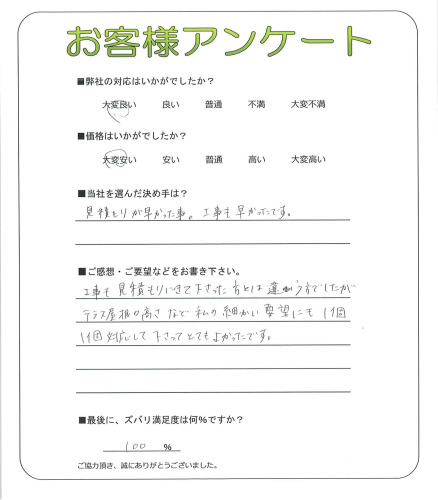 お客様アンケート
■弊社の対応はいかがでしたか?
大変良い 良い 普通 不満 大変不満
■価格はいかがでしたか?
大変安い 安い 普通 高い 大変高い
■当社を選んだ決め手は?
見積もりが早かった事。工事も早かったです。
■ご感想・ご要望などをお書き下さい。
工事も見積もりにきて下さった方とは違う方でしたが
テラス屋根の高さなど私の細かい要望にも1個
1個対応して下さってとてもよかったです。
■最後に、ズバリ満足度は何%ですか?
100 %
ご協力頂き、誠にありがとうございました。